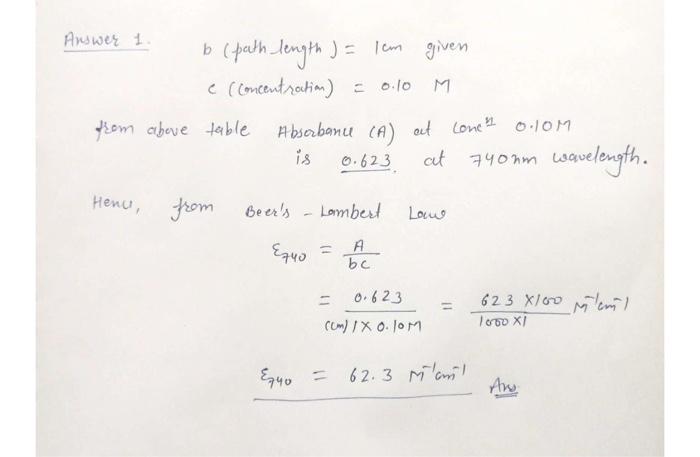 Answer 1.
b (path length) = 1cm given
c (concentration) = 0.10 M
from above table Absorbance (A) at concⁿ 0.10M
is 0.623 at 740nm wavelength.
Hence, from Beer's - Lambert Law
ε₇₄₀ = A / bc
= 0.623 / (cm) 1 × 0.10M = 623 × 100 / 1000 × 1 M⁻¹cm⁻¹
ε₇₄₀ = 62.3 M⁻¹cm⁻¹ Ans